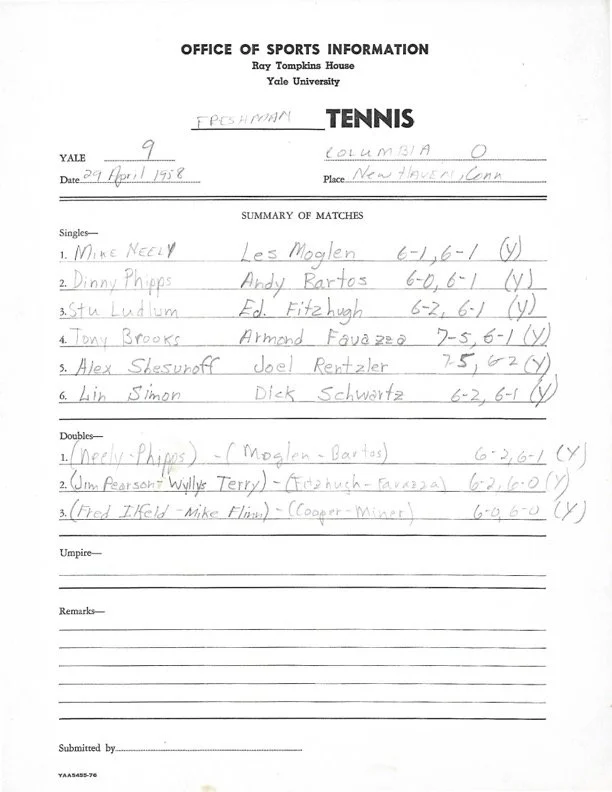 OFFICE OF SPORTS INFORMATION
Ray Tompkins House
Yale University
FRESHMAN TENNIS
YALE 9 COLUMBIA 0
Date 29 April 1958 Place New HAVEN, Conn
SUMMARY OF MATCHES
Singles—
1. MIKE NEELY Les Moglen 6-1, 6-1 (Y)
2. Dinny Phipps Andy Bartos 6-0, 6-1 (Y)
3. Stu Ludlum Ed. Fitzhugh 6-2, 6-1 (Y)
4. Tony Brooks Armond Favazza 7-5, 6-1 (Y)
5. Alex Shesunoff Joel Rentzler 7-5, 6-2 (Y)
6. Lin Simon Dick Schwartz 6-2, 6-1 (Y)
Doubles—
1. (Neely-Phipps) - (Moglen-Bartos) 6-2, 6-1 (Y)
2. (Jim Pearson-Wyllys Terry) - (Fitzhugh-Favazza) 6-2, 6-0 (Y)
3. (Fred Ilfeld-Mike Flinn) - (Cooper-Miner) 6-0, 6-0 (Y)
Umpire—
Remarks—
Submitted by
YAA5455-76